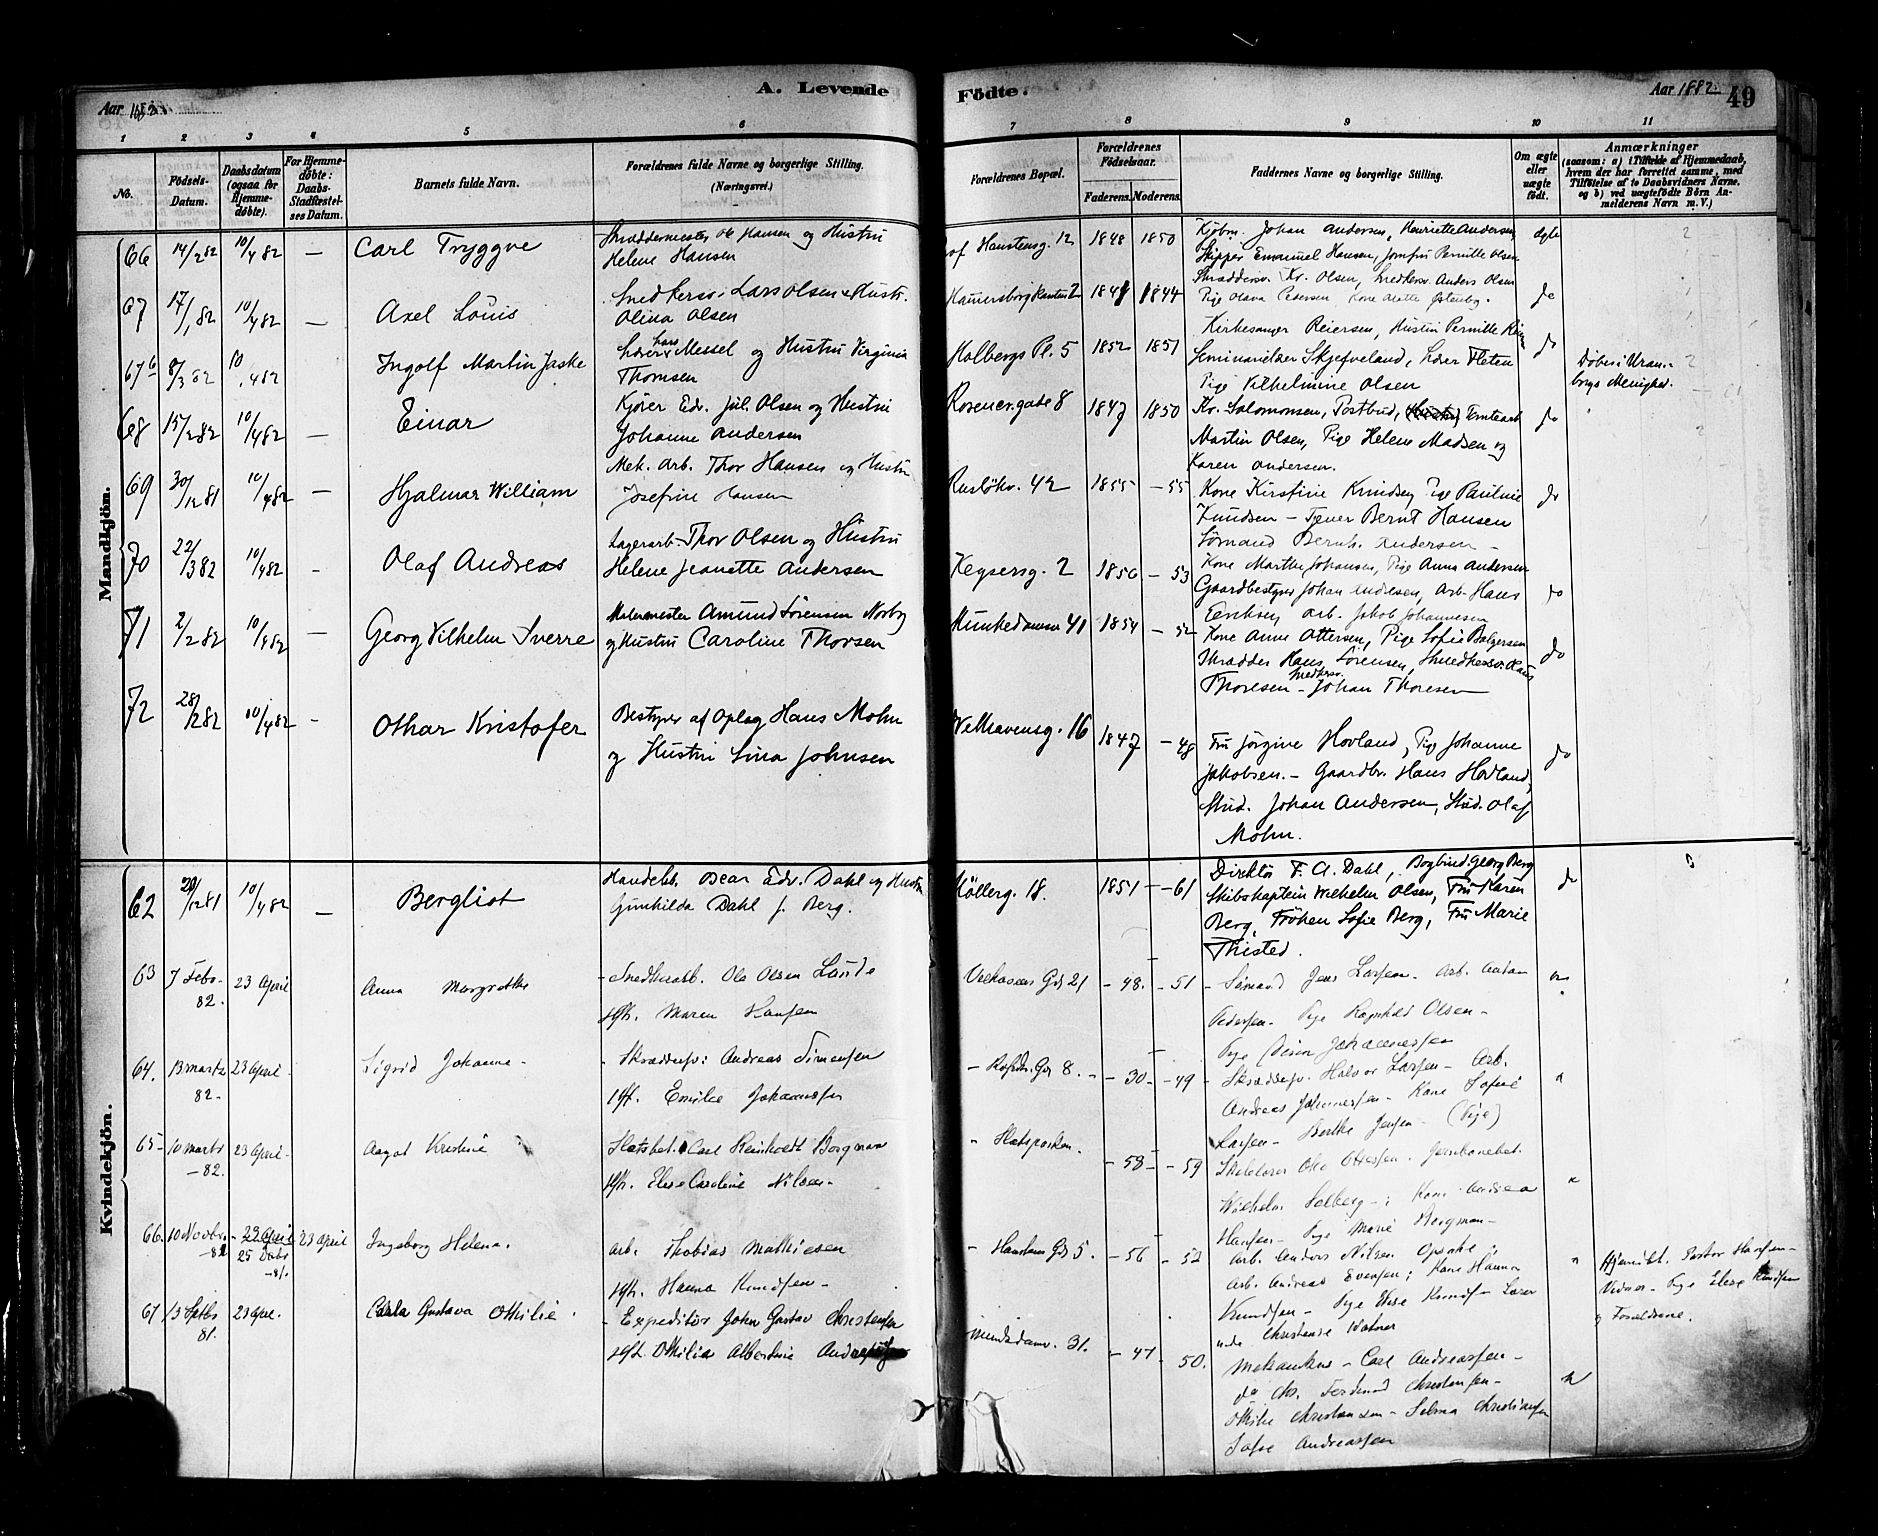 Aar 1882. A. Levende Fødte. Aar 1882. 49
1 2 3 4 5 6 7 8 9 10 11
No. Fødsels-Datum. Daabsdatum (ogsaa for Hjemmedøbte). For Hjemmedøbte: Daabs-Stadfæstelses Datum. Barnets fulde Navn. Forældrenes fulde Navne og borgerlige Stilling. (Næringsvei.) Forældrenes Bopæl. Forældrenes Fødselsaar. Faderens. Moderens. Faddernes Navne og borgerlige Stilling. Om ægte eller uægte født. Anmærkninger (saasom: a) i Tilfælde af Hjemmedaab, hvem der har forrettet samme, med Tilføielse af to Daabsvidners Navne, og b) ved uægtefødte Børn Anmelderens Navn m. V.)
Mandkjön.
66 14/2 82 10/4 82 — Carl Tryggve Skræddermester Ole Hansen og Hustru
Helene Hansen
af Haustensg. 12 1848 1850 Kjøbm. Johan Andersen, Henriette Andersen, ægte
Skipper Emanuel Hansen, Jomfru Pernille Olsen
67 17/1 82 10/4 82 — Axel Louis Snedkersv. Lars Olsen & Hustr.
Olina Olsen
Hammersborg 1844 Skræddersv. Kr. Olsen, Snedkersv. Anders Olsen do
Pige Olava Pedersen Kone
67 b 8/3 82 10/4 82 Ingolf Martin Lærer Lars Messel og Hustru Virginia
Thomsen
Holbergs Pl. 5 1852 1851 Kirkesanger Reiersen, Hustru Pernille do
Seminarielær Skjefveland, Lærer Fleten
Pige Vilhelmine Olsen
Døbes i Uranienborgs Menighed.
68 15/2 82 10/4 82 — Einar Kjører Edv. Jul. Olsen og Hustru
Johanne Andersen
Rosencr.gade 8 1847 1850 Kr. Salomonsen, Postbud, Tomtearb. do
Martin Olsen, Pige Helene Madsen og
Karen Andersen.
69 30/12 81 10/4 82 — Hjalmar William Mek. Arb. Thor Hansen og Hustru
Josefine Hansen
Rusløkv. 42 1855 — 55 Kone Kirstine Knudsen, Pige Pauline do
Knudsen — Tjener Bernt Hansen
Sømand Bernh. Andersen —
70 22/3 82 10/4 82 - Olaf Andreas Lagerarb. Thor Olsen og Hustru
Helene Jeanette Andersen
Keysersg. 2 1856 — 53 Kone Marthe Johansen, Pige Anna Andersen do
Gaardbestyrer Johan Andresen, Arb. Hans
Eriksen, Arb. Jakob Johannesen
71 2/2 82 10/4 82 — Georg Vilhelm Sverre Malermester Amund Sørensen Norby
og Hustru Caroline Thorsen
Munkedamsv 41 1854 — 52 Kone Anne Ottersen, Pige Sofie Bølgersen do
Skrædder Hans Sørensen, Snedkersv. Hans
Thoresen — Snedkersv. Johan Thoresen
72 28/2 82 10/4 82 - Othar Kristofer Bestyrer af Oplag Hans Mohn
og Hustru Lina Johnsen
Welhavensg. 16 1847 — 48 Fru Jørgine Hovland, Pige Johanne do
Jakobsen. — Gaardbr. Hans Hovland,
Stud. Johan Andersen, Stud. Olaf
Mohn.
Kvindekjön.
62 20/12 81 10/4 82 — Bergliot Handelsb. Bear Edv. Dahl og Hustru
Gunhilda Dahl f. Berg.
Møllerg. 18. 1851 — 61 Direktør F. A. Dahl, Bogbind. Georg Berg do
Skibskaptein Wilhelm Olsen, Fru Karen
Berg, Frøken Sofie Berg, Fru Marie
Thisted.
63 7 Febr. 82. 23 April Anna Margrethe Snedkerarb. Ole Olsen Lunde
Hst. Maren Hansen
Velhavens Gd 21 - 48. - 51 - Sømand Jens Larsen - Arb. Anton
Pedersen - Pige Ragnhild Olsen -
Pige Johannessen
64. 13 marts 82. 23 April - Sigrid Johanne - - Skræddersv: Andreas Simensen
Hst. Emilie Johannesen
- Rosckr. Gd 8. - 30 - - 49 - Skræddersv. Halvor Larsen - Arb.
Andreas Johannessen - Kone Sofie
Larsen - Berthe Jensen - (Pige)
65 10 marts - 82. 23 April - Aagot Kristine Slotsbet. Carl Reinholdt Bergman
Hst. Elise Caroline Nilsen -
- Slotsparken. - 58 - - 59 Ole Ottersen. Jernbanebet.
Wilhelm Solberg -; Kone Andrea
Hansen - Pige Marie Bergman -
66. 10 Novbr. - 81 - 23 April 25 Decbr - 81. 23 April Ingeborg Helena. Arb. Thobias Mathiesen
Hst. Hanna Knudsen -
- Haustens Gd 5. - 56 - 52 Arb. Anders Nilsen
Arb. Andreas Evensen; Kone Hanna
Knudsen - Pige Elise Knuds.
Christense
Hjemdbt. Pastor Hansen -
Vidner - Pige Elise Knudsen
og Forældrene.
67 13 Septbr 81. 23 Apr. Carla Gustava Othilie. - Expeditør John Gustav Christensen
Hst. Othilia Albertine
Munkedamv. 31. - 47 - 50. Mekanikus - Carl Andreassen -
do Chr. Ferdinand Christensen -
Othilie Christensen - Selma Christensen
Sofie Andreassen